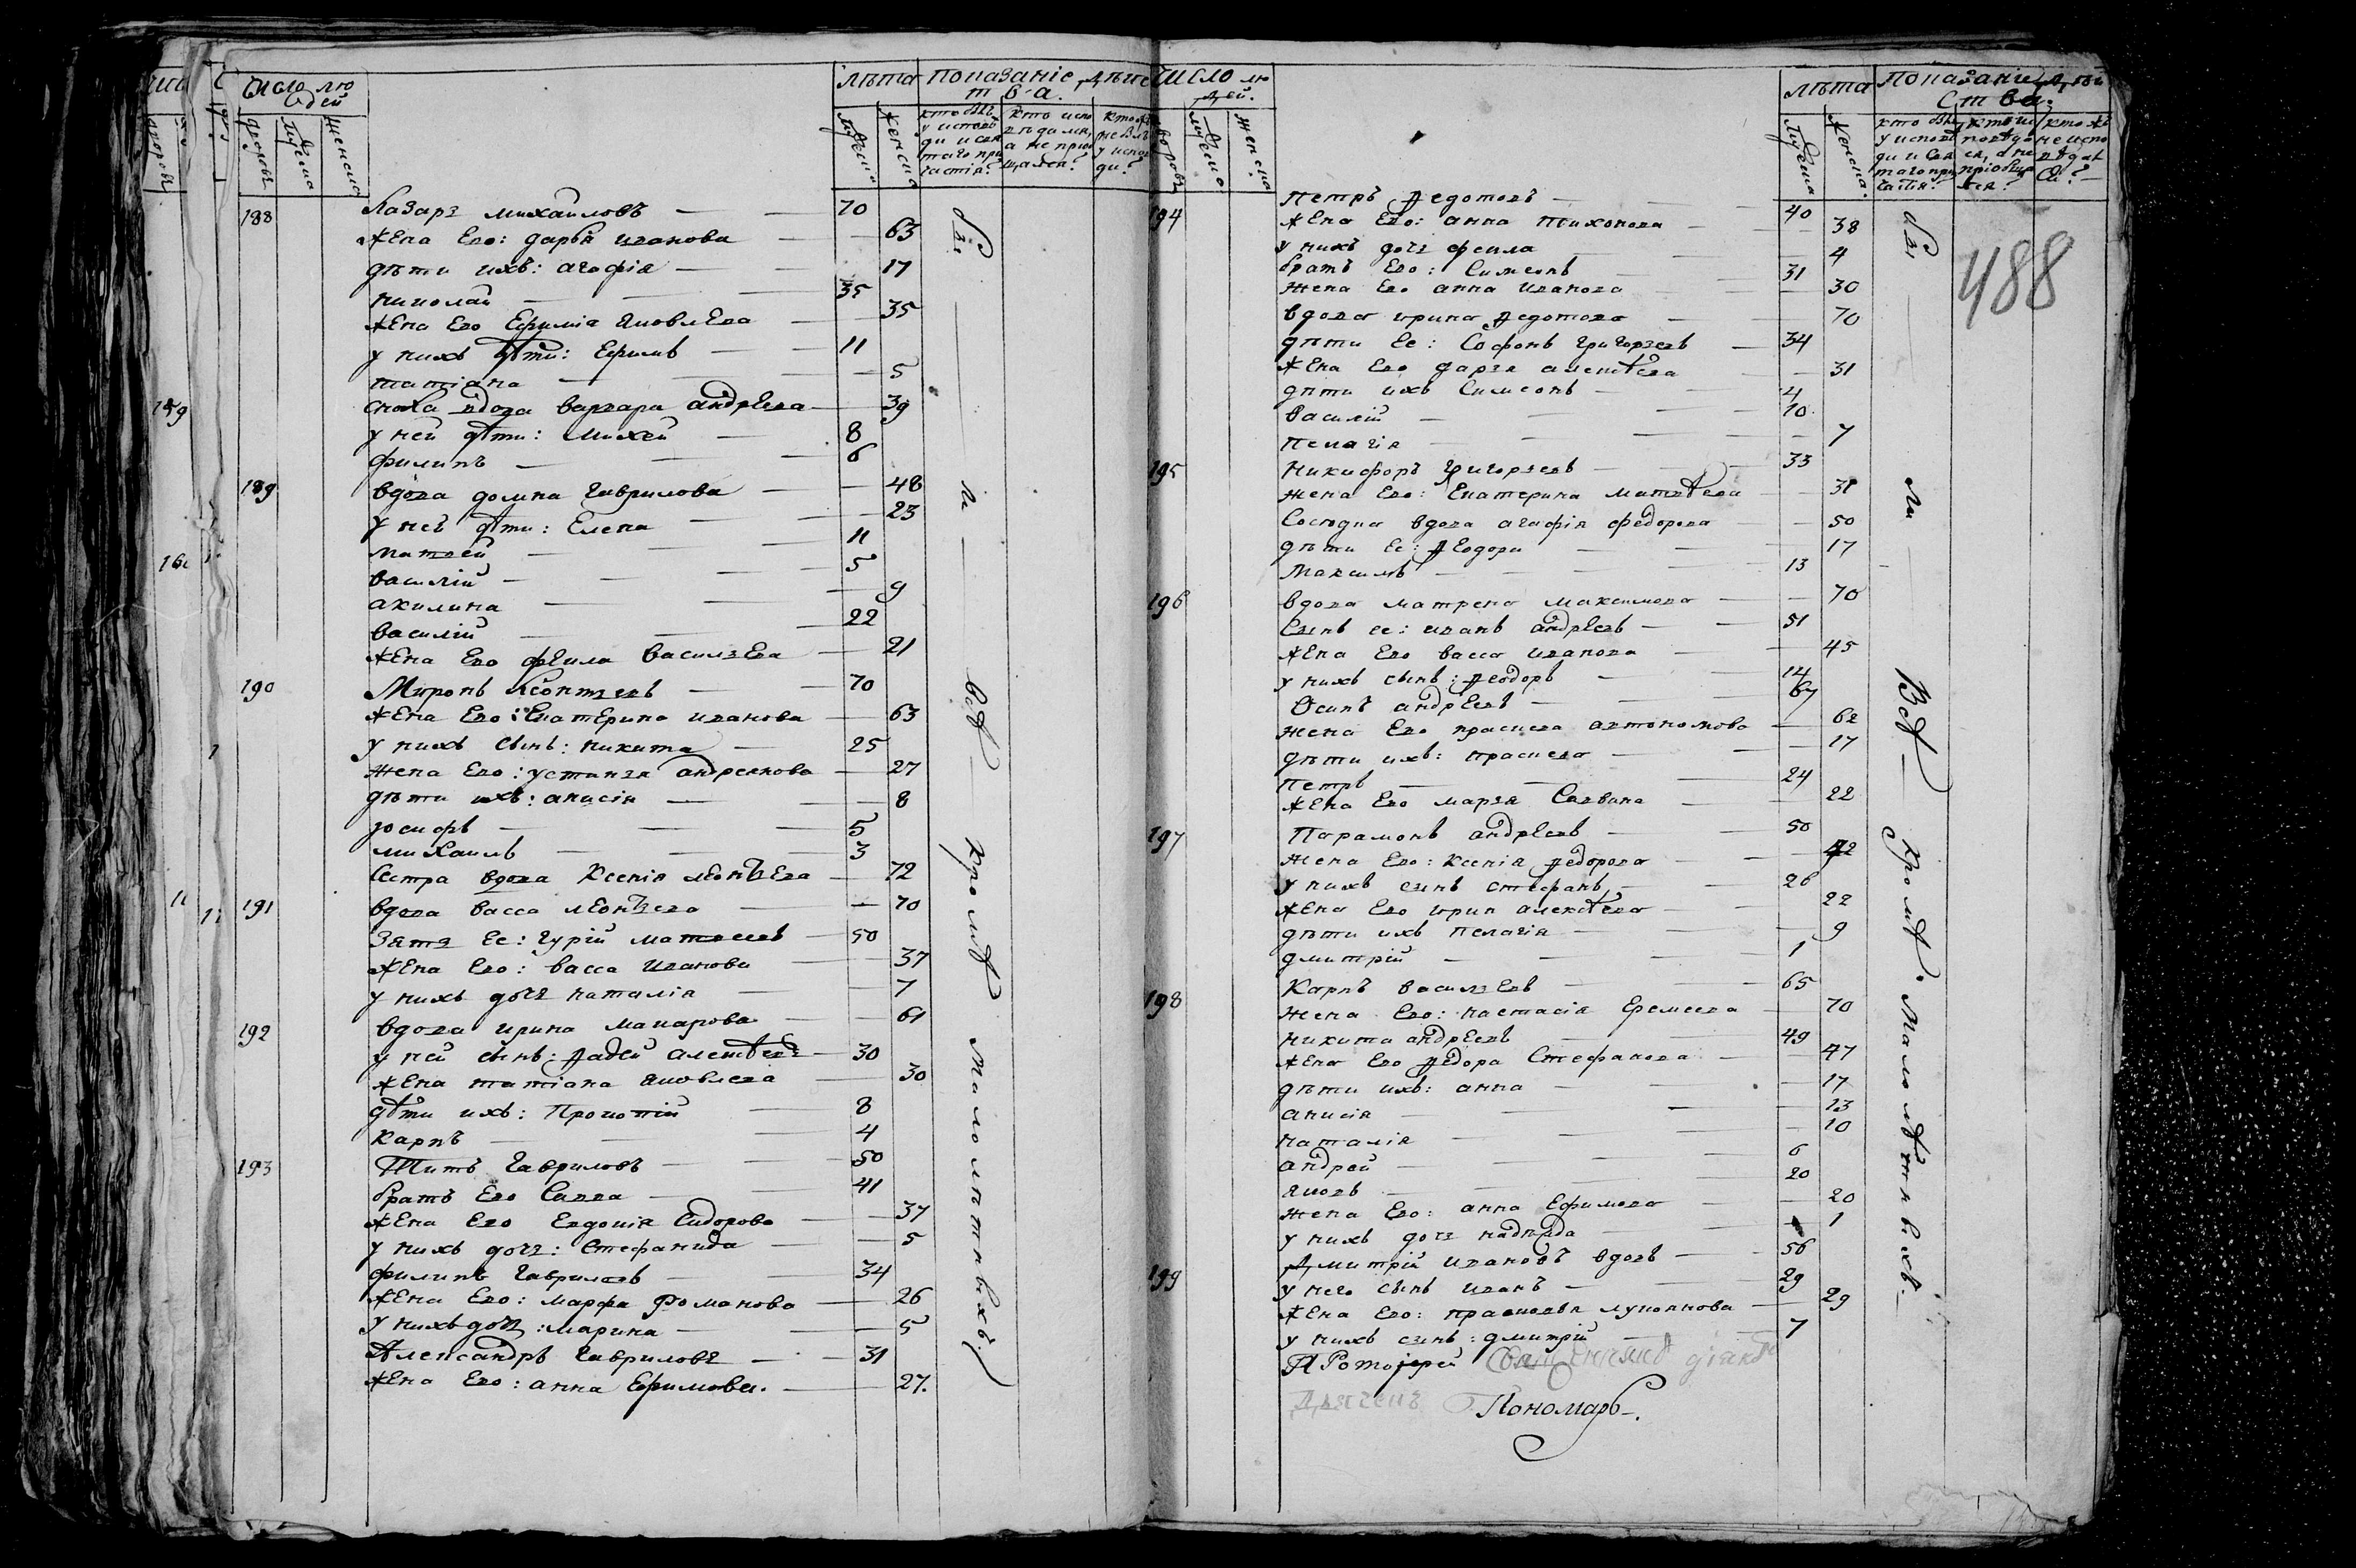 Число людей
дворовъ
мужеска
женска
лѣта
мужеска
женска
показанiе дѣйства.
кто былъ у исповѣди и святаго причастiя?
кто исповѣдался, а не прiобщался?
кто же не былъ у исповѣди?
188 Лазарь михаиловъ — 70
жена Его: дарья иванова — 63
дѣти ихъ: агафiя — 17
николай — 35
жена Его Ефимiя яковлева — 35
у нихъ дѣти: Ефимъ — 11
татiана — 5
159
сноха вдова варвара андреева — 39
у ней дѣти: михей — 8
филипъ — 6
189 вдова домна гаврилова — 48
у неѣ дѣти: Елена — 23
матвей — 11
160
василiй — 5
акилина — 9
василiй — 22
жена Его фекла васильева — 21
190 Миронъ Леонтьевъ — 70
жена Его: Екатерина иванова — 63
у нихъ сынъ: никита — 25
жена Его: устинья андреянова — 27
дѣти ихъ: анисiя — 8
иосифъ — 5
михаилъ — 3
сестра вдова Ксенiя леонтьева — 72
191 вдова васса леонтьева — 70
Зять Ее: гурiй матвеевъ — 50
жена Его: васса иванова — 37
у нихъ дочь наталiя — 7
192 вдова ирина макарова — 61
у ней сынъ: Фадей алексѣевъ — 30
жена татiана яковлева — 30
дѣти ихъ: Прокопiй — 8
карпъ — 4
193 Титъ гавриловъ — 50
братъ Его Савва — 41
жена Его Евдокiя Сидорова — 37
у нихъ дочь: Стефанида — 5
филипъ гавриловъ — 34
жена Его: марфа романова — 26
у нихъ дочь: марина — 5
Александръ гавриловъ — 31
жена Его: анна Ефимова. — 27.
были всѣ кромѣ малолѣтныхъ.
Число людей.
дворовъ
мужеска
женска
лѣта
мужеска
женска.
показанiе дѣйства.
кто былъ у исповѣди и святаго причастiя?
кто исповѣдался, а не прiобщался?
кто же не исповѣдался?
488
194 Петръ Федотовъ — 40
жена Его: анна Тихонова — 38
у нихъ дочь фекла — 4
братъ Его: Симеонъ — 31
жена Его анна иванова — 30
вдова ирина Федотова — 70
дѣти Ее: Софонъ григорьевъ — 34
жена Его дарья алексѣева — 31
дѣти ихъ Симеонъ — 4
василiй — 10
пелагiя — 7
195 Никифоръ григорьевъ — 33
жена Его: Екатерина матвѣева — 31
Соседка вдова агафiя федорова — 50
дѣти Ее: Феодора — 17
Максимъ — 13
196 вдова матрена максимова — 70
Сынъ ее: иванъ андреевъ — 51
жена Его васса иванова — 45
у нихъ сынъ: Феодоръ — 14
Осипъ андреевъ — 67
жена Его праскева автономова — 62
дѣти ихъ: праскева — 17
петръ — 24
жена Его марья Саввина — 22
197 Парамонъ андреевъ — 50
жена Его: ксенiя Федорова — 42
у нихъ сынъ стефанъ — 26
жена Его ирин алексѣева — 22
дѣти ихъ пелагiя — 9
дмитрiй — 1
198 Карпъ васильевъ — 65
жена Его: настасiя Еремеева — 70
никита андреевъ — 49
жена Его Федора Стефанова — 47
дѣти ихъ: анна — 17
анисiя — 13
наталiя — 10
андрей — 6
яковъ — 20
жена Его: анна Ефимова — 20
у нихъ дочь надежда — 1
199 Дмитрiй ивановъ вдовъ — 56
у него сынъ иванъ — 29
жена Его: прасковья лукоянова — 29
у нихъ сынъ: дмитрiй — 7
были всѣ кромѣ малолѣтныхъ.
Протоiерей Священникъ дiаконъ
Дьячекъ Пономарь.